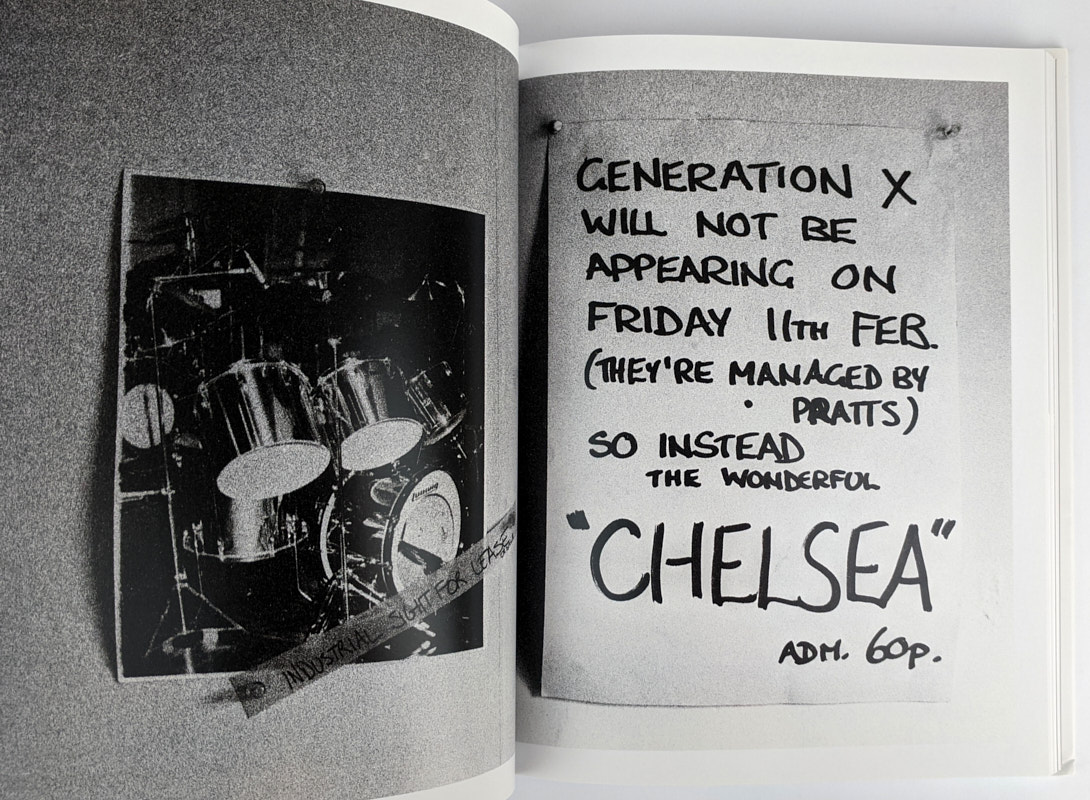 Ludwig
INDUSTRIAL SIGHT FOR LEASE
GENERATION X
WILL NOT BE
APPEARING ON
FRIDAY 11TH FEB.
(THEY'RE MANAGED BY
PRATTS)
SO INSTEAD
THE WONDERFUL
"CHELSEA"
ADM. 60p.